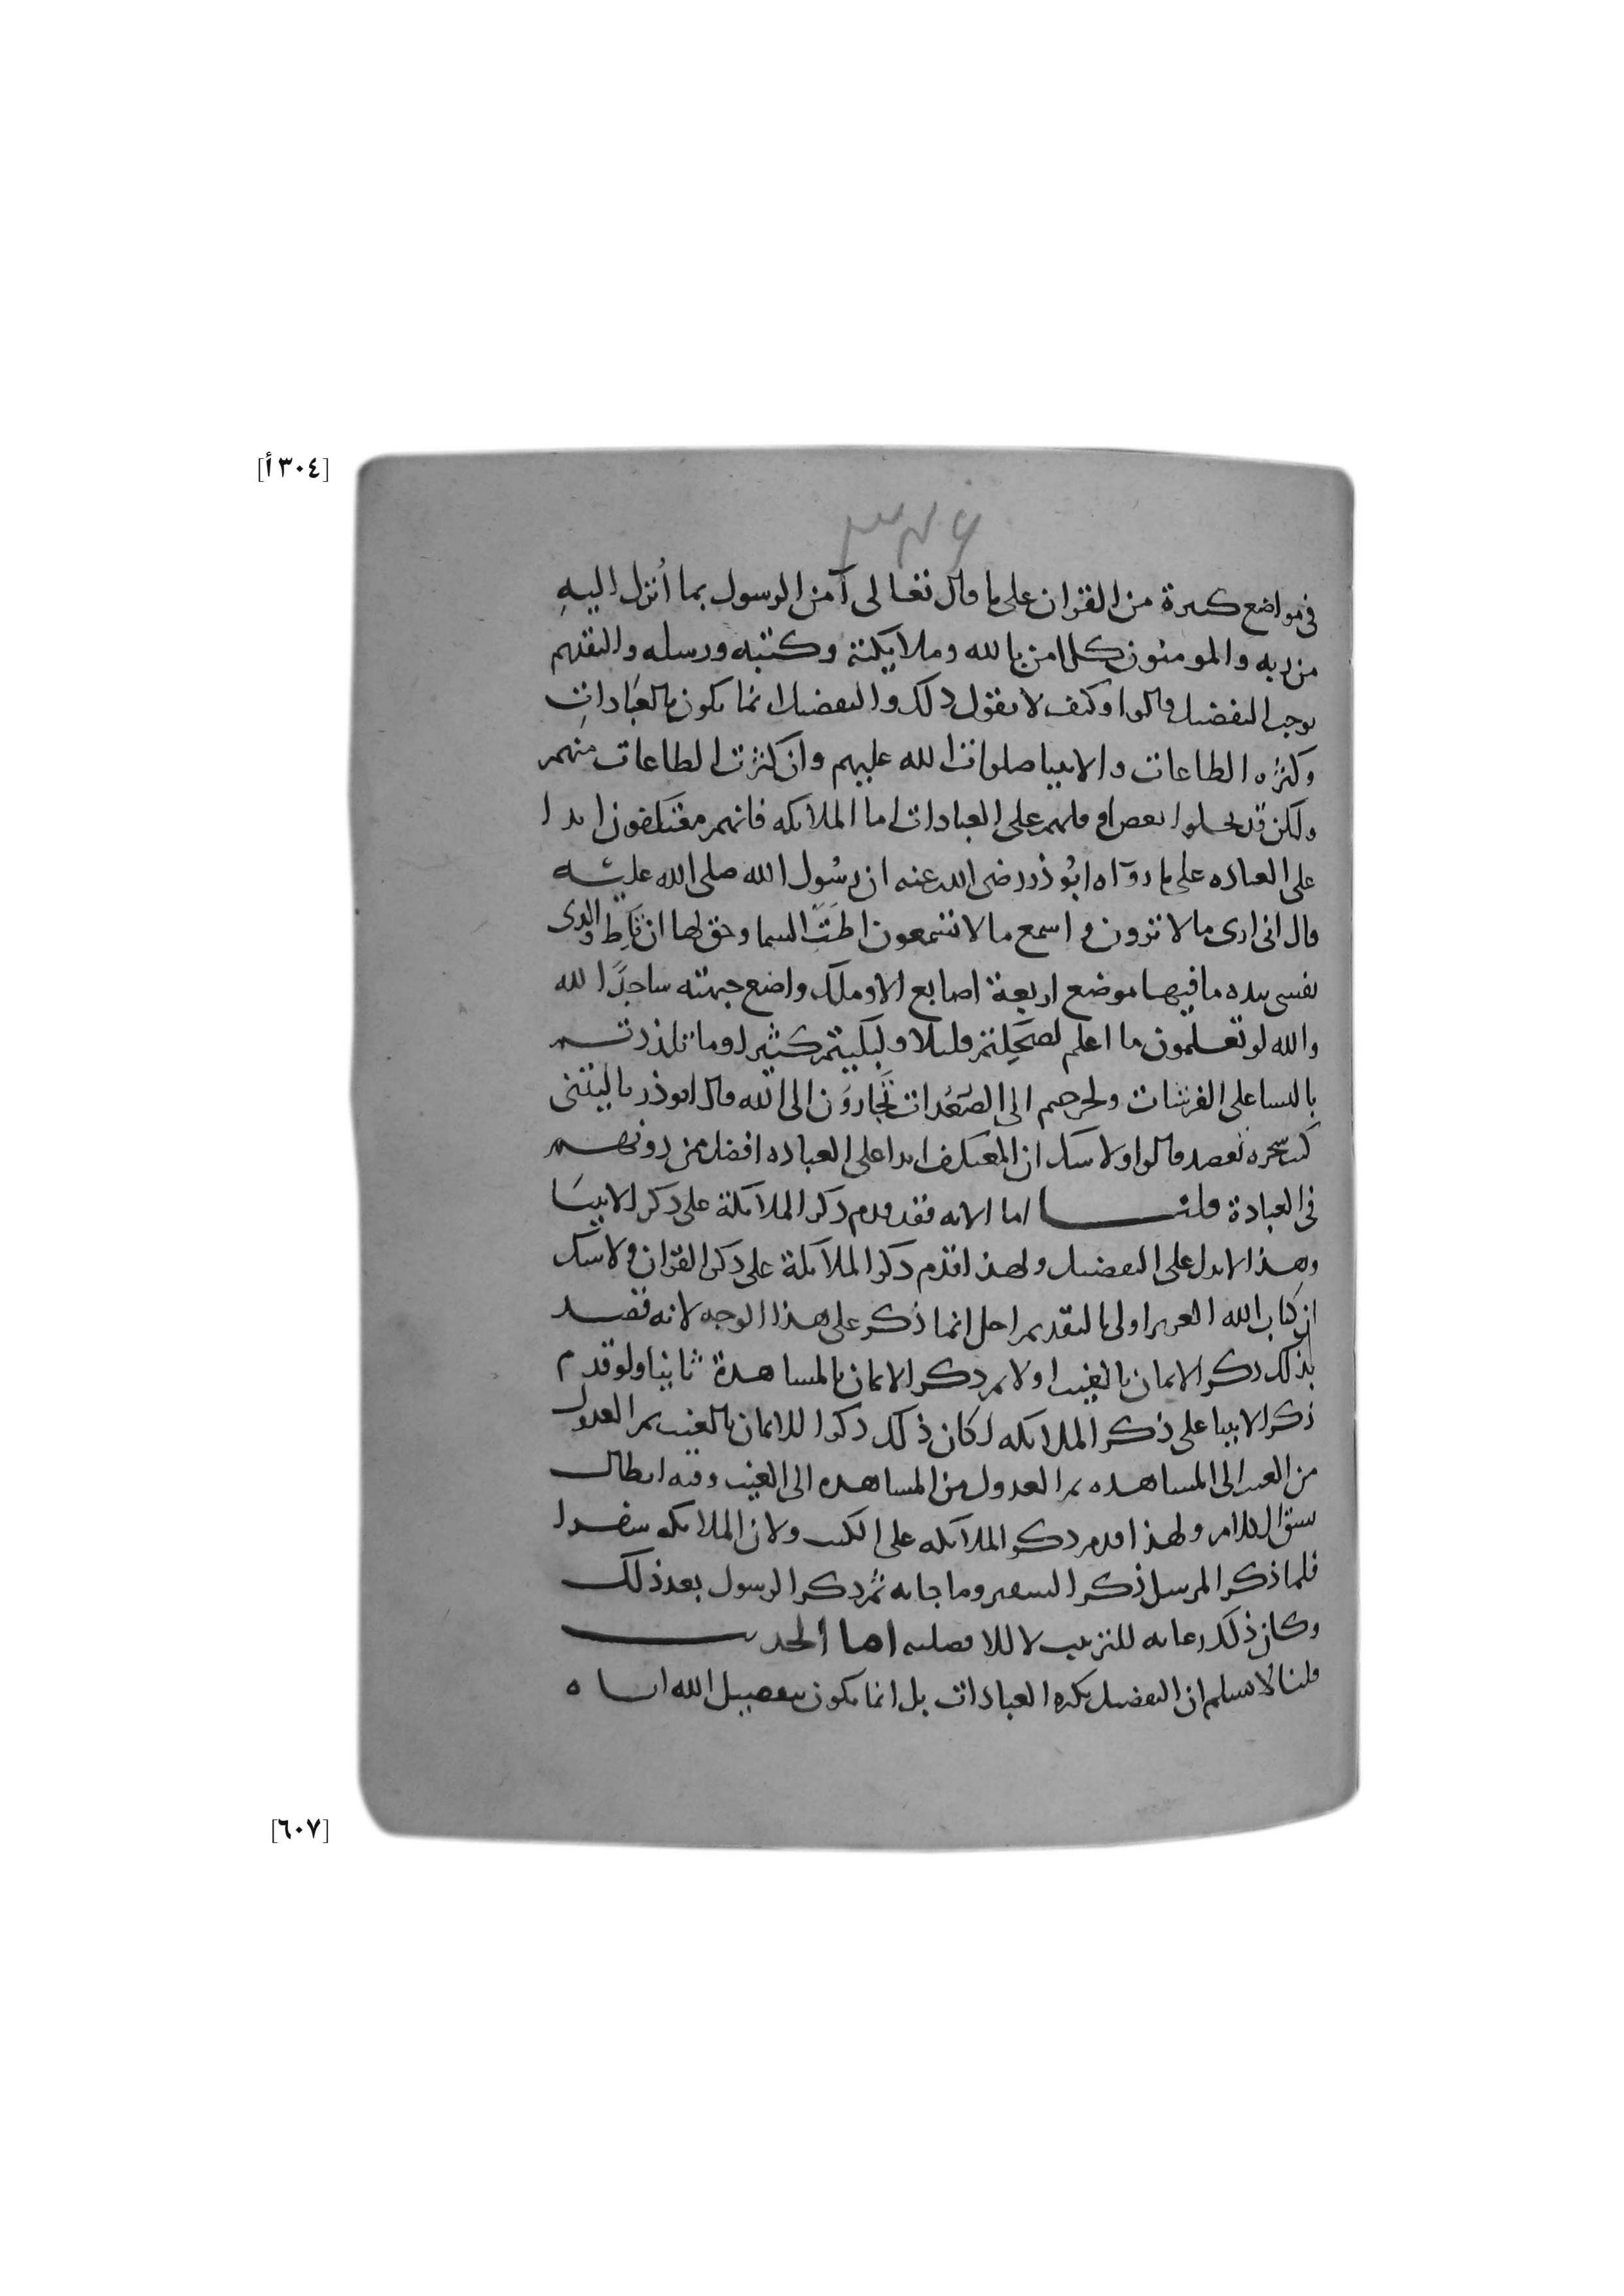 [٣٠٤أ]
في مواضع كثيرة من القران على ما قال تعالى آمن الرسول بما أُنزل اليهِ
من ربه والمومنون كل امن بالله وملايكته وكتبه ورسله والتقديم
يوجب التفضيل قالوا وكيف لا نقول ذلك والتفضيل انما يكون بالعبادات
وكثرة الطاعات والانبيا صلوات الله عليهم وان كثرت الطاعات منهم
ولكن قد يخلوا بعض اوقاتهم على العبادات اما الملايكه فانهم معتكفون ابدا
على العباده على ما رواه ابُو ذر رضى الله عنه ان رسُول الله صلى الله عليه
قال انى ارى ما لا ترون واسمع ما لا تسمعون اطت السما وحق لها ان تاط والذى
نفسى بيده ما فيها موضع اربعة اصابع الا وملك واضع جبهته ساجدًا لله
والله لو تعلمون ما اعلم لضحكتم قليلا ولبكيتم كثيرا وما تلذذتم
بالنسا على الفرشات ولخرجتم الى الصُعُدات تجارون الى الله قال ابو ذر يا ليتنى
كنت شجره تعضد قالوا ولا شك ان المعتكف ابدا على العباده افضل من دونهم
فى العبادة قلنا اما الايه فقد قدم ذكر الملايكة على ذكر الانبيا
وهذا لا يدل على التفضيل ولهذا قدم ذكر الملايكة على ذكر القران ولا شك
ان كتاب الله العزيز اولى بالتقديم اجل انما ذكر على هذا الوجه لانه قصد
بذلك ذكر الايمان بالغيب اولا ثم ذكر الايمان بالمشاهدة ثانيا ولو قدم
ذكر الانبيا على ذكر الملايكه لكان ذلك ذكرا للايمان بالغيب ثم العدول
من الغيب الى المشاهده ثم العدول من المشاهده الى الغيب وفيه ابطال
للامر ولهذا قدم ذكر الملايكه على الكتب ولان الملايكه سفرا
فلما ذكر المرسل ذكر السفير وما جا به ثم ذكر الرسول بعد ذلك
وكان ذلك رعايه للترتيب لا للافضليه اما الحديث
قلنا لا نسلم ان التفضيل بكثره العبادات بل انما يكون بتفضيل الله
[٦٠٧]